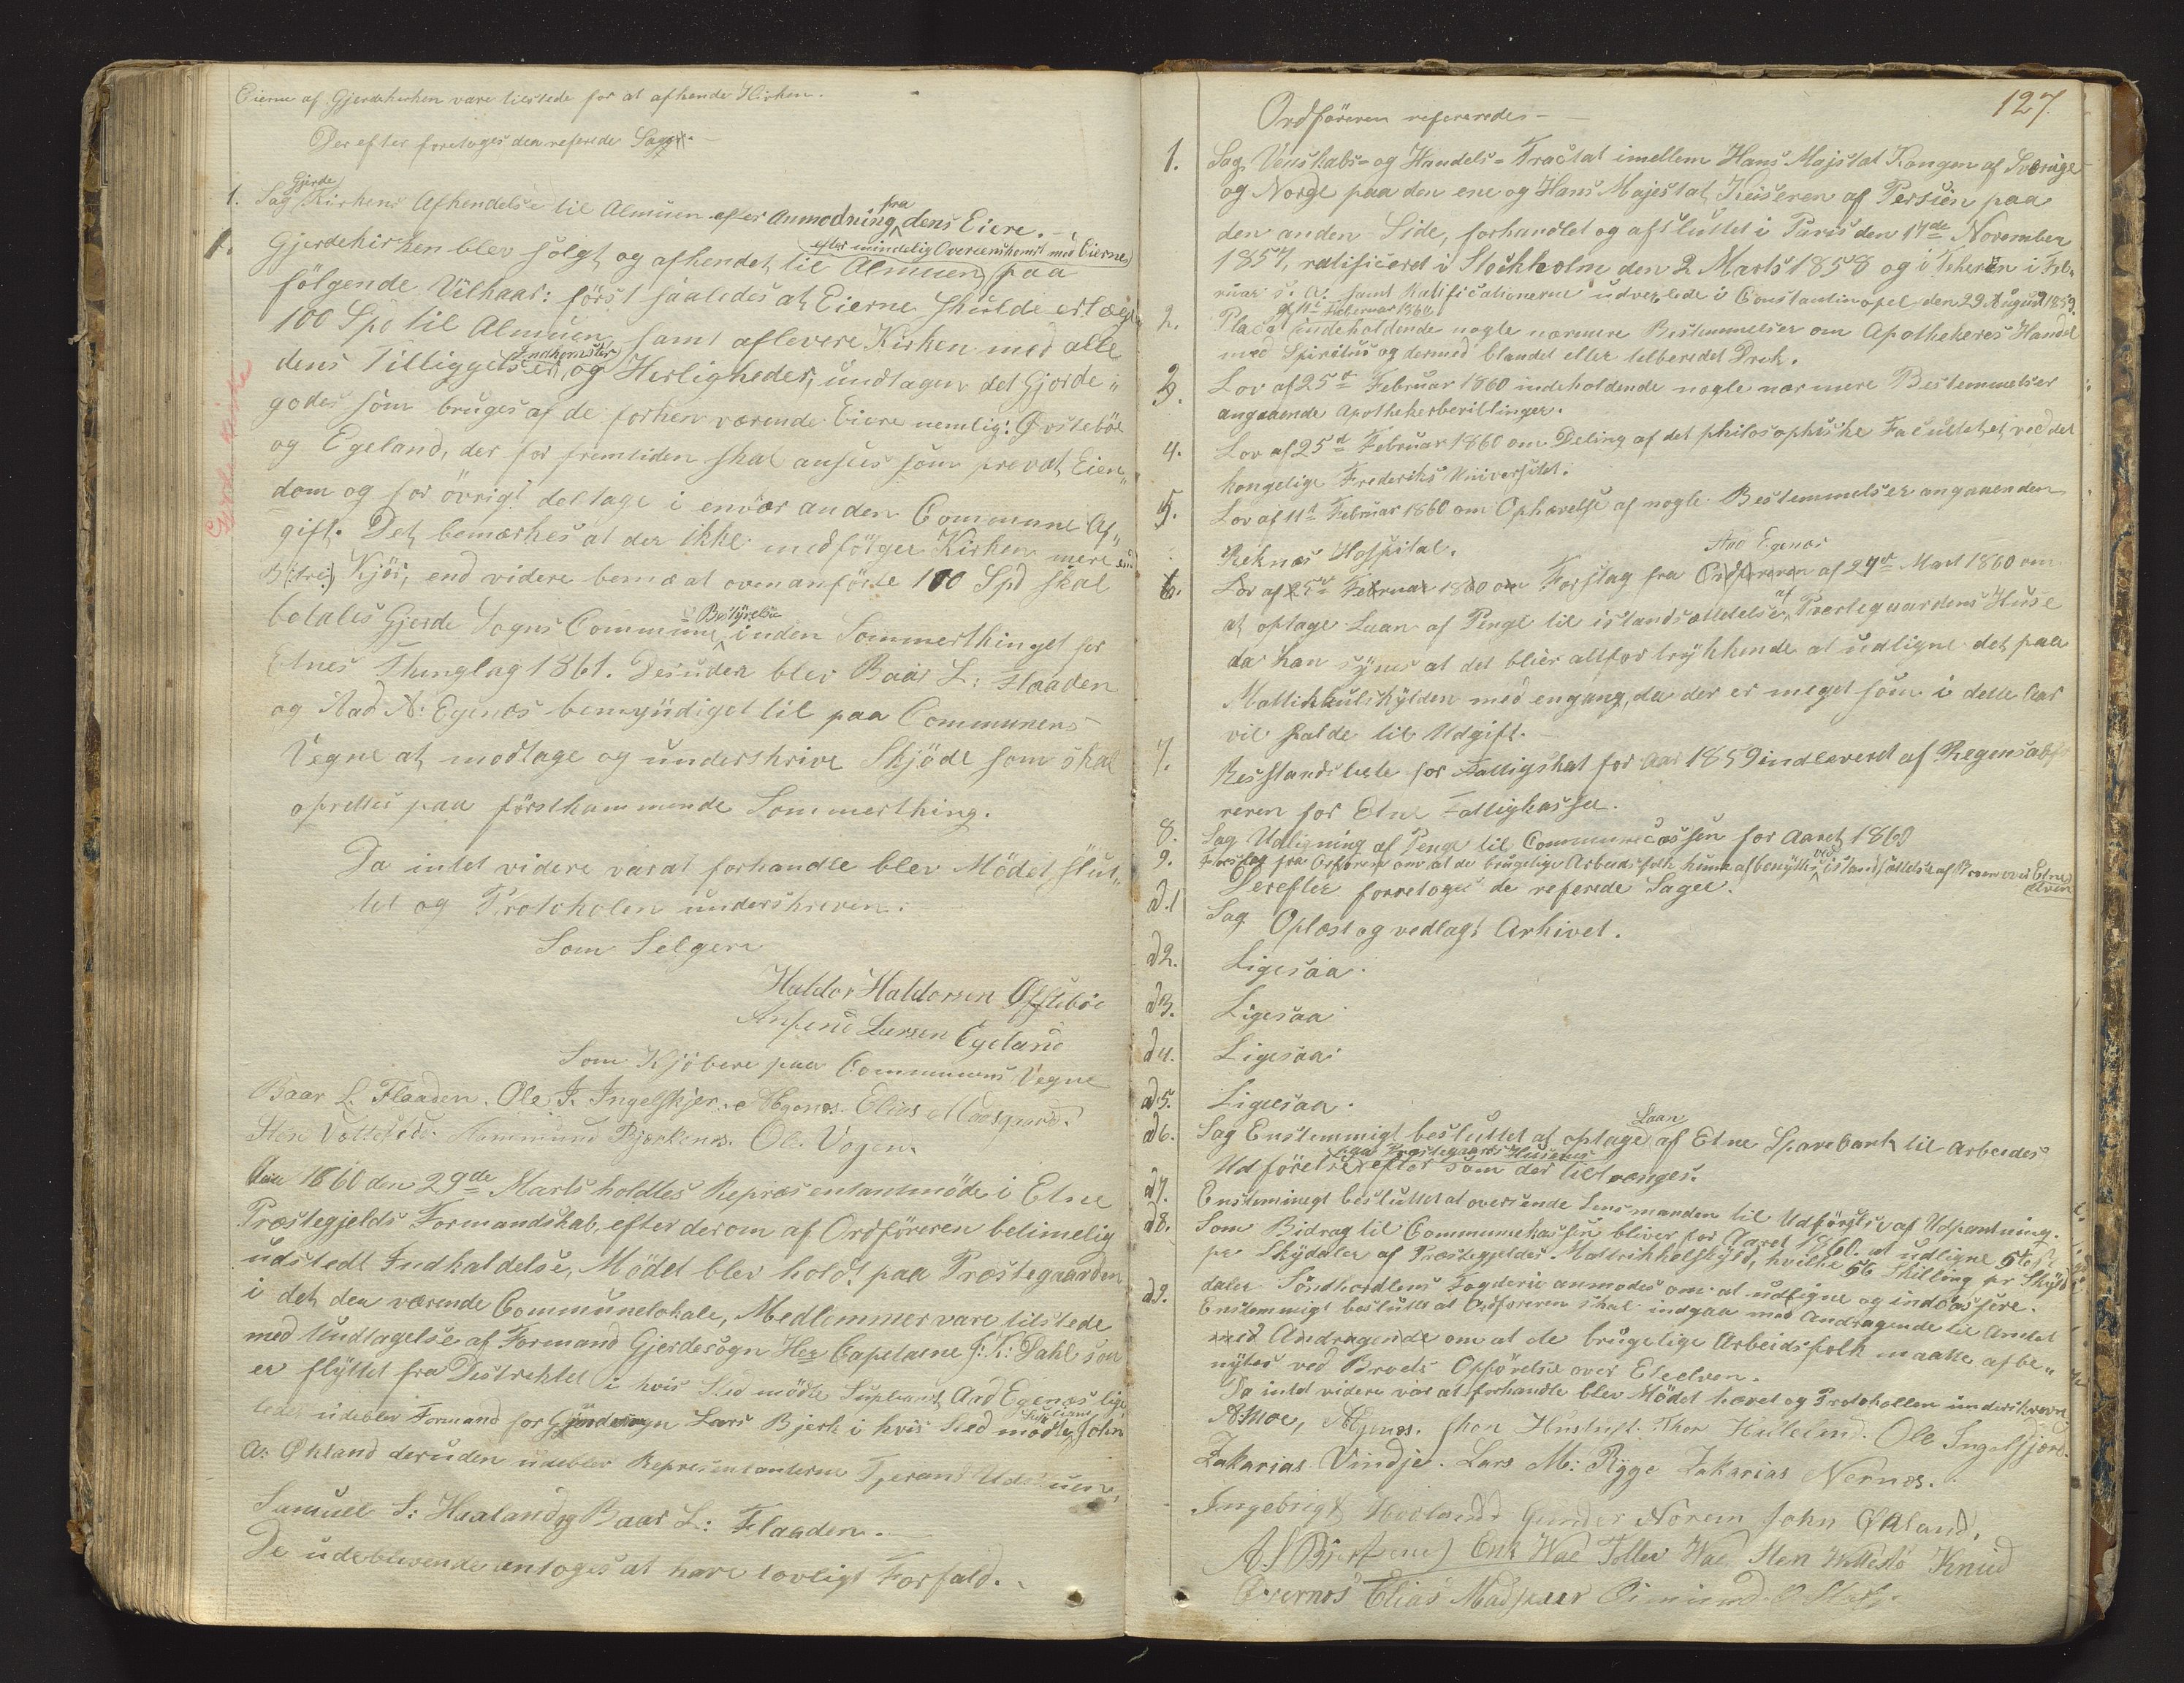 Eierne af Gjerdekirken vare tilstede for at afhende Kirken.
Der efter foretoges den referede Sag.
1. Sag Gjerde Kirkens Afhendelse til Almuen efter Anmodning fra dens Eiere.
1. Gjerdekirken blev solgt og afhendet til Almuen efter mindelig Overeenskomst med Eierne paa
følgende Vilkaar: først saaledes at Eierne skulde erlægge
100 Spd til Almuen samt aflevere Kirken med alle
dens Tilliggelser, Indkomster og Herligheder, undtagen det Gjorde„
godes som bruges af de forhen værende Eiere nemlig: Østebøe
og Egeland, der for fremtiden skal ansees som prevat Eien„
dom og for øvrigt deltage i enhver anden Commune Af„
gift. Det bemærkes at der ikke medfølger Kirken mere end
3 (:tre:) Kjør, end videre bem: at ovenanførte 100 Spd skal
betales Gjerde Sogns Commune Bestyrelse inden Sommerthinget for
Etnes Thinglag 1861. Desuden blev Baar L: Flaaden
og Aad A. Egenæs bemyndiget til paa Communens
Vegne at modtage og underskrive Skjøde som skal
oprettes paa førstkommende Sommerthing.
Da intet videre var at forhandle blev Mødet slut„
tet og Protokolen underskreven:
Som Selgere
Haldor Haldorsen Østebøe
Anfend Larsen Egeland
Som Kjøbere paa Communens Vegne
Baar L. Flaaden. Ole J. Ingelskjer. AEgenæs. Elias Madsgaard.
Sten Vattesdde. Aammund Bjerkenes. Ol. Vogen.
Aar 1860 den 29de Marts holdtes Repræsentantmøde i Etne
Præstegjelds Formandskab, efter derom af Ordføreren betimelig
udstedt Indkaldelse, Mødet blev holdt paa Præstegaarden
i det der værende Communelokale, Medlemmer vare tilstede
med Undtagelse af Formand Gjerdesogn Her Capetaene J: K: Dahl som
er flyttet fra Destrektet i hvis Sted mødte Supleant Aad Egenæs lige
ledes udeblev Formand for Gjerdesogn Lars Bjerk i hvis Sted mødte Supleant John
A: Økland deruden udeblev Repræsentanterne
Samuel S: Haaland og Baar L: Flaaden.
De udeblevende antoges at have lovligt Forfald.
127.
Ordføreren refererede
1. Sag Venskabs- og Handels-Tractat imellem Hans Majstat Kongen af Sverige
og Norge paa den ene og Hans Majestat Keiseren af Persien paa
den anden Side, forhandlet og afsluttet i Paris den 17de November
1857, ratificeret i Stockholm den 2 Marts 1858 og i Teheran i Feb„
ruar s. A. samt Ratificationerne udvexlede i Constantinopel den 29 August 1859.
2. Placat af 11t Februar 1860 indeholdende nogle nærmere Bestemmelser om Apothekeres Handel
med Spiritus og dermed blandet eller tilberedet Drik.
3. Lov af 25d Februar 1860 indeholdende nogle nærmere Bestemmelser
angaaende Apothekerbevillinger.
4. Lov af 25d Februar 1860 om Deling af det philosophiske Facultetet ved det
kongelige Frederiks Universitet.
5. Lov af 11t Februar 1860 om Ophævelse af nogle Bestemmelser angaaenden
Reknæs Hospital.
6. Lov af 25d Februar 1860 om Forslag fra Ordføreren Aad Egenæs af 27d Mart 1860 om
at optage Laan af Penge til istandsættdelse af Præstegaardens Huse
da han synes at det blier altfor trykkende at udligne det paa
Mattikkulskylden med engang, da der er meget som i dette Aar
vil falde til Udgift.
7. Restandsliste for Fattigskat for Aar 1859 indleveret af Regensabsfø
reren for Etne Fattigkasse.
8. Sag Udligning af Penge til Communecassen for Aaret 1860
9. Forslag fra Ordføreren om at de brugelige Arbeidsfolk kunne afbenyttes ved istandsættelse af Broen over Etne
elven
Derefter foretoges de referede Sager.
ad.1 Sag Oplæst og vedlagt Arhivet.
ad2. Ligesaa.
ad3. Ligesaa
ad4. Ligesaa.
ad5. Ligeesaa.
ad6. Sag Enstemmigt besluttet at optage Laan af Etne Sparebank til Arbeides
Udførelse paa Præstegaards Husene efter som der tiltrænges.
ad7. Enstemmegt besluttet at oversende Lensmanden til Udførelse af Udpantning.
ad8. Som Bidrag til Communekassen bliver for Aaret 1860. at udligne 56
pr Skyddaler af Præstegjeldes Mattrikkelskyld, hvilke 56 Skilling pr Skyld
daler Søndhordlens Fogderie anmodes om at udligne og indcassere.
ad9. Enstemmigt besluttet at Ordføreren skal indgaa med Andragende til Amtet
med Andragende om at de brugelige Arbeidsfolk maatte afbe„
nytes ved Broets Opførelse over Etneelven.
Da intet videre var at forhandle blev Mødet hævet og Protokollen underskreven
A: Moe, AEgenæs. Thor Halleland. Ole Ingelsjerd.
Zakarias Vindje. Lars M: Rygge Zakarias Nernæs.
Ingebrigt Hovland Gunder Norem John Økland.
A. Bjerkenes Erik Wae Tollev Wae Sten Wattesdø Knud
Øvernæs Elias Madsgaar
Gjerde kirke